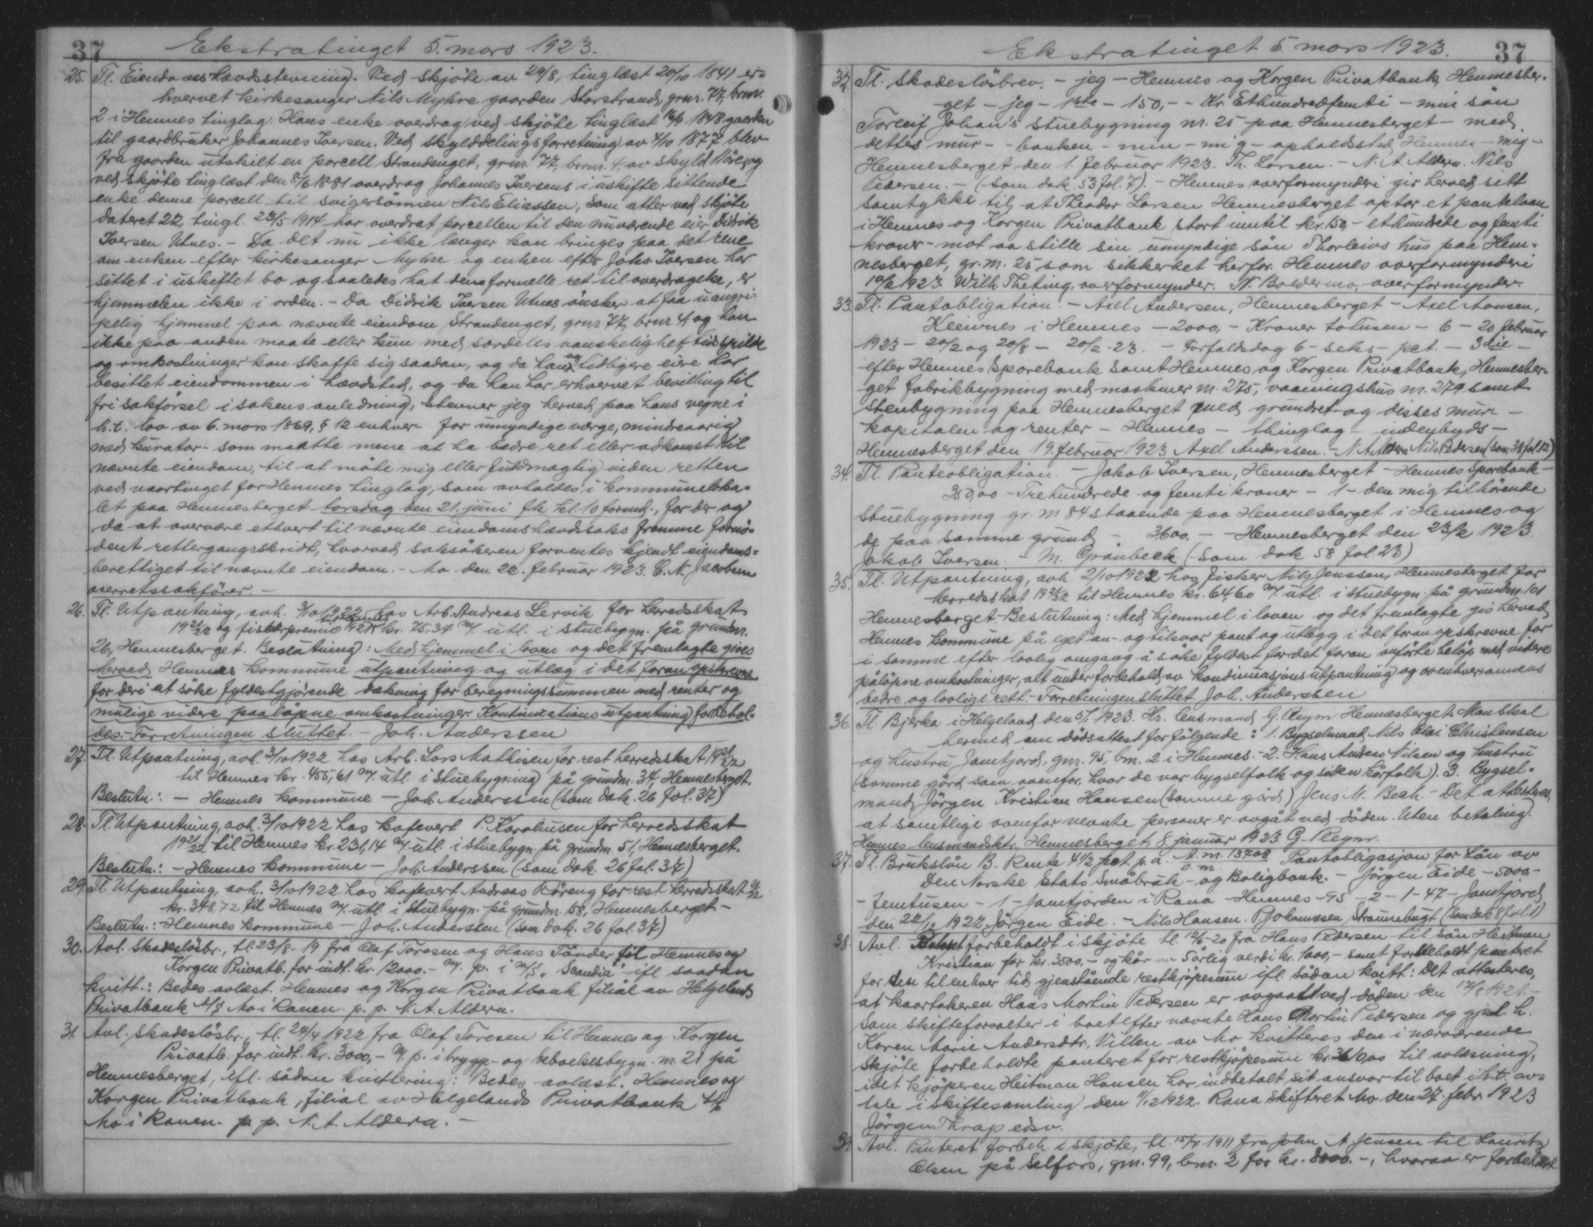 37
Ekstratinget 5. mars 1923.
25. Tl. Eiendomshævdsstevning. Ved skjøte av 29/8, tinglæst 20/10 1841 er-
hvervet kirkesanger Nils Myhre gaarden Storstrand, grnr. 77, brnr.
2 i Hemnes tinglag. Hans enke overdrog ved skjøte tinglæst 1848 gaarden
til gaardbruker Johannes Iversen. Ved skylddelingsforretning av 4/10 1877 blev
fra gaarden utskilt en parcell Strandenget, grnr. 77, brnr. 4 av skyld Mark og
ved skjøte tinglæst den 8/6 1881 overdrog Johannes Iversens i uskifte sittende
enke denne parcell til svigersønnen Nils Eliassen, som atter ved skjøte
dateret 22, tingl. 23/5 1914 har overdrat parcellen til den nuværende eier Didrik
Iversen Utnes. - Da det nu ikke længer kan bringes paa det rene
om enken efter kirkesanger Myhre og enken efter Johs Iversen har
sittet i uskiftet bo og saaledes hat den formelle ret til overdragelse, er
hjemmelen ikke i orden. - Da Didrik Iversen Utnes ønsker at faa uangri-
pelig hjemmel paa nævnte eiendom Strandenget, grnr 77, brnr 4 og han
ikke paa anden maate eller kun med særdeles vanskelighet tidsspilde
og omkostninger kan skaffe sig saadan, og da han og tidligere eiere har
besittet eiendommen i hævdstid, og da han har erhvervet bevilling til
fri sakførsel i sakens anledning, stevner jeg herved paa hans vegne i
h.t. lov av 6. mars 1869, § 12 enhver for umyndige værge, mindreaarig
med kurator - som maatte mene at ha bedre ret eller adkomst til
nævnte eiendom, til at møte mig eller fuldmægtig inden retten
ved vaartinget for Hemnes tinglag, som avholdes i kommuneloka-
let paa Hemnesberget torsdag den 21. juni fk. kl. 10 formd., for der og
da at overvære ethvert til nævnte eiendomshævdssaks fremme fornø-
dent rettergangsskridt, hvorved saksøkeren forventes kjendt eiendoms-
berettiget til nævnte eiendom. - Mo den 22. februar 1923. C. N. Jacobsen
overretssakfører. -
26. Tl. Utpantning, avh. 3/10 1922 hos Arb. Andreas Lervik for herredsskat
1921/22 og fisker premie 1921 kr. 75,31 m/ utl. i stuebygn. på grundnr.
26, Hemnesberget. Beslutning: Med hjemmel i loven og det fremlagte gives
herved Hemnes kommune utpantning og utlæg i det foran opskrevne
for deri at søke fyldestgjørende dækning for beregningssummen med renter og
mulige videre paaløpne omkostninger. Kontinuationsutpantning forbehol-
des. Forretningen sluttet. - Joh. Anderssen
27. Tl. Utpantning, avh. 3/10 1922 hos Arb. Lars Mathisen for rest herredsskat 1921/22
til Hemnes kr. 455,61 m/ utl. i stuebygning på grundnr. 34, Hemnesberget.
Beslutn.: - Hemnes kommune - Joh. Anderssen (som dok. 26 fol. 37)
28. Tl. Utpantning, avh. 3/10 1922 hos kafevert P. Karolusen for herredsskat
1921/22 til Hemnes kr. 231,14 m/ utl. i stuebygn. på grundnr. 51, Hemnesberget.
Beslutn: - Hemnes kommune - Joh. Anderssen (som dok. 26 fol. 37)
29. Tl. Utpantning, avh. 3/10 1922 hos kafevert Andreas Røreng for rest herredsskat 21/22
kr. 398,72 til Hemnes m/ utl. i stuebygn. på grundnr. 58, Hemnesberget -
Beslutn: - Hemnes kommune - Joh. Anderssen (som dok. 26 fol. 37)
30. Avl. Skadesløsbr., tl. 23/8-19 fra Olaf Toresen og Hans Tønder til Hemnes og
Korgen Privatb. for indt. kr. 12000.- m. p. i m/s. "Scandia" ifl. saadan
kvitt.: Bedes avlæst. Hemnes og Korgen Privatbank filial av Helgelands
Privatbank A/S Mo i Ranen. p. p. N. A. Aldera.
31. Avl. skadesløsbr., tl. 24/4 1922 fra Olaf Toresen til Hemnes og Korgen
Privatb. for indt. kr. 3000,- m. p. i brygge- og beboelsesbygn. nr. 21 på
Hemnesberget, ifl. sådan kvittering: Bedes avlæst. Hemnes og
Korgen Privatbank, filial av Helgelands Privatbank A/S
Mo i Ranen. p. p. N. A. Aldera. -
Ekstratinget 5 mars 1923.
37
32. Tl. Skadesløsbrev. - jeg - Hemnes og Korgen Privatbank, Hemnesber-
get - jeg - 1ste - 150,- - Kr. Ethundredefemti - min søn
Torleif Johan's stuebygning nr. 25 paa Hemnesberget - med
dettes mur - - banken - min - mig - opholdssted, Hemnes - mig -
Hemnesberget den 1. februar 1923. Th. Larsen. - N. A. Aldera. Nils
Pedersen. - (som dok. 53 fol. 7). - Hemnes overformynderi gir herved sitt
samtykke til, at Theodor Larsen Hemnesberget optar et pantelaan
i Hemnes og Korgen Privatbank stort inntil kr. 150 - ethundrede og femti
kroner - mot aa stille sin umyndige søn Thorleivs hus paa Hem-
nesberget, gr.nr. 25 som sikkerhet herfor. Hemnes overformynderi
10/2 1923 Wilh. Theting, overformynder. overformynder.
33. Tl. Pantobligation. - Axel Andersen, Hemnesberget - Axel
i Hemnes - 2000,- Kroner totusen - 6 - 20 februar
1923 - 20/2 og 20/8 - 20/2-23. - forfaldsdag 6 - seks - pct. - 3die -
efter Hemnes Sparebank samt Hemnes og Korgen Privatbank, Hemnesber-
get fabrikbygning med maskiner nr. 275, vaaningshus nr. 279 samt
stenbygning paa Hemnesberget med grundret og disses mur -
kapitalen og renter - Hemnes - thinglag - indenbyds -
Hemnesberget den 19. februar 1923 Axel Anderssen. - N. A. Aldera Nils Pedersen (som 38 fol 12)
34. Tl. Panteobligation. - Jakob Iversen, Hemnesberget - Hemnes Sparebank -
350,00 - Trehundrede og femti kroner - 1 - den mig tilhørende
Stuebygning gr. nr 84 staaende paa Hemnesberget i Hemnes og
de paa samme grund - 3600. - - Hemnesberget den 23/2 1923.
Jakob Iversen. - M. Grønbeck (som dok 58 fol 23)
35. Tl. Utpantning, avh. 2/10 1922 hos fisker Nils Jenssen, Hemnesberget for
herredsskat 1921/22 til Hemnes kr. 64,60 m/ utl. i stuebygn. på grundnr. 101
Hemnesberget - Beslutning: Med hjemmel i loven og det fremlagte gis herved
Hemnes kommune på eget an- og tilsvar pant og utlegg i det foran opskrevne for
i samme efter lovlig omgang å søke fyldest for det foran anførte beløp med videre
påløpne omkostninger, alt under forbehold av kondinuasjons utpantning og
bedre og lovlige rett. Forretningen sluttet. Joh. Anderssen
36. Tl. Bjerka i Helgeland den 5/1 1923. Hr. lensmand G. Reym Hemnesberget. Man skal
herved om dødsattest for følgende: 1. Bygselmand Nils Olai Christensen
og hustru Jamtjord, gnr. 95, bnr. 2 i Hemnes - 2. Hans Anders Nilsen og hustru
(samme gård som ovenfor, hvor de var bygselfolk og siden kårfolk). 3. Bygsel-
mand Jørgen Kristian Hansen (samme gård) Jens M. Bech. - Det attesteres,
at samtlige ovenfor nevnte personer er avgått ved døden. Uten betaling.
Hemnes lensmandsktr. Hemnesberget, 8 januar 1923 G Reym.
37. Tl. Brukslån B. Rente 4½ pct p. a. A. nr. 13708 Pantobligasjon for Lån av
Den Norske Stats Småbruk- og Boligbank. - Jørgen Eide - 5000 -
- femtusen - 1 - Jamtfjorden i Rana - Hemnes - 95 - 2 - 1 - 47 - Jamtfjord
den 22/12 1922 Jørgen Eide. - Nils Hansen. P. Johanssen Straumbugt
38. Avl. Panteret forbeholdt i skjøte tl. 12/6-20 fra Hans Pedersen til søn Heitman
Kristian for kr. 3500,- og kår - 5årlig verdi kr. 1000,- samt forbeholdt panteret
for den til enhver tid gjenstående restkjøpesum ifl. sådan kvitt: Det attesteres,
at kaartakeren Hans Martin Pedersen er avgaatt ved døden den 1921 -
Som skifteforvalter i boet efter nævnte Hans Martin Pedersen og gjenl. h.
Karen Marie Andersdtr. Villen av Mo kvitteres den i nærværende
skjøte forbeholdte panteret for restkjøpesum kr. 3600,00 til avlæsning,
idet kjøperen Heitman Hansen har indbetalt sit ansvar til boet i h.t. av-
tale i skiftesamling den 11/12 1922. Rana skifteret Mo. den 27. febr. 1923
Jørgen Krag edsv.
39. Avl. Panteret forbeh. i skjøte, tl. 15/7 1911 fra John A Jensen til Lauritz
Olsen på Selfors, gnr. 99, bnr. 2 for kr. 8000.-, hvorav er forbeholdt